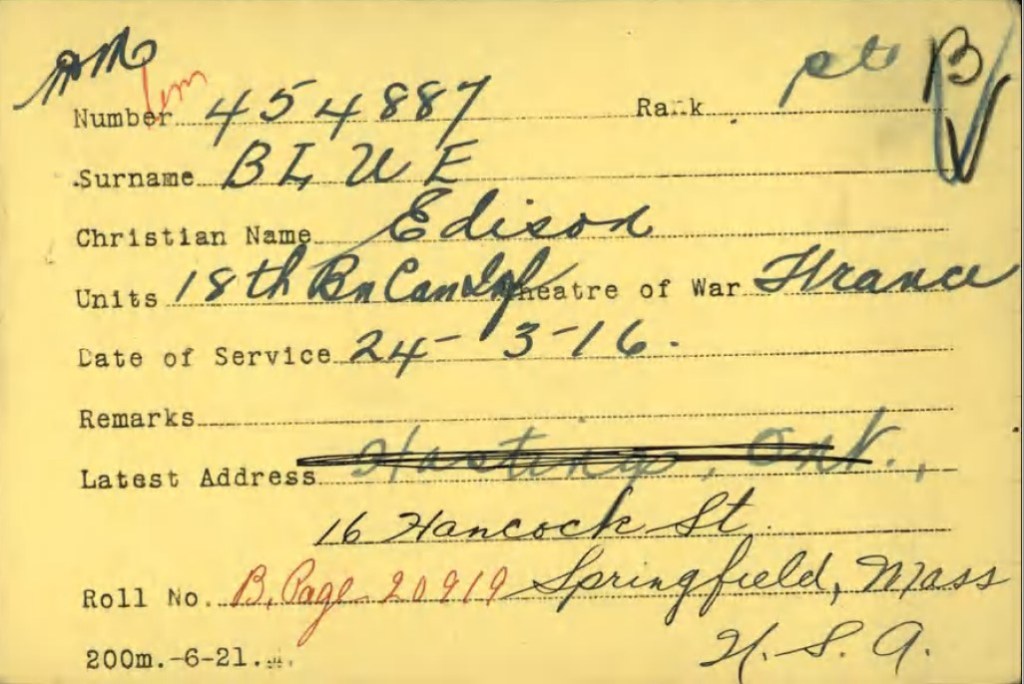 B
Number 454887 Rank pte
V
Surname BLUE
Christian Name Edison
Units 18th Bn Can Inf Theatre of War France
Date of Service 24-3-16.
Remarks
Latest Address Hastings, Ont.,
16 Hancock St.
Roll No. B. Page 20919 Springfield, Mass
U.S.A.
200m.-6-21.